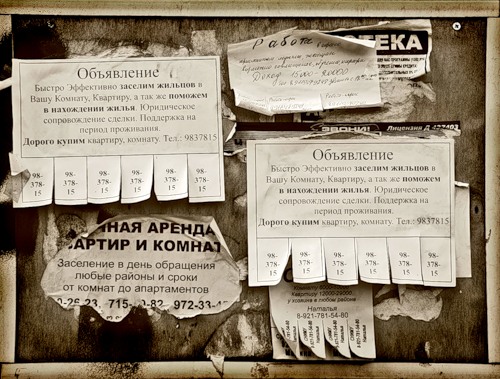 Объявление
Быстро Эффективно заселим жильцов в
Вашу Комнату, Квартиру, а так же поможем
в нахождении жилья. Юридическое
сопровождение сделки. Поддержка на
период проживания.
Дорого купим квартиру, комнату. Тел.: 9837815
98-
378-
15
98-
378-
15
98-
378-
15
98-
378-
15
98-
378-
15
98-
378-
15
Работа
Доход
ТЕКА
ЗВОНИ!
Лицензия Д
Объявление
Быстро Эффективно заселим жильцов в
Вашу Комнату, Квартиру, а так же поможем
в нахождении жилья. Юридическое
сопровождение сделки. Поддержка на
период проживания.
Дорого купим квартиру, комнату. Тел.: 9837815
98-
378-
15
98-
378-
15
98-
378-
15
98-
378-
15
98-
378-
15
98-
378-
15
ЧНАЯ АРЕНДА
АРТИР И КОМНАТ
Заселение в день обращения
любые районы и сроки
от комнат до апартаментов
0-26 23, 715- 0-82 972-33-
Комнату
Квартиру
у хозяина в любом районе
Наталья
8-921-781-54-80
сниму
8-921-781-54-80
Наталья
сниму
8-921-781-54-80
Наталья
сниму
8-921-781-54-80
Наталья